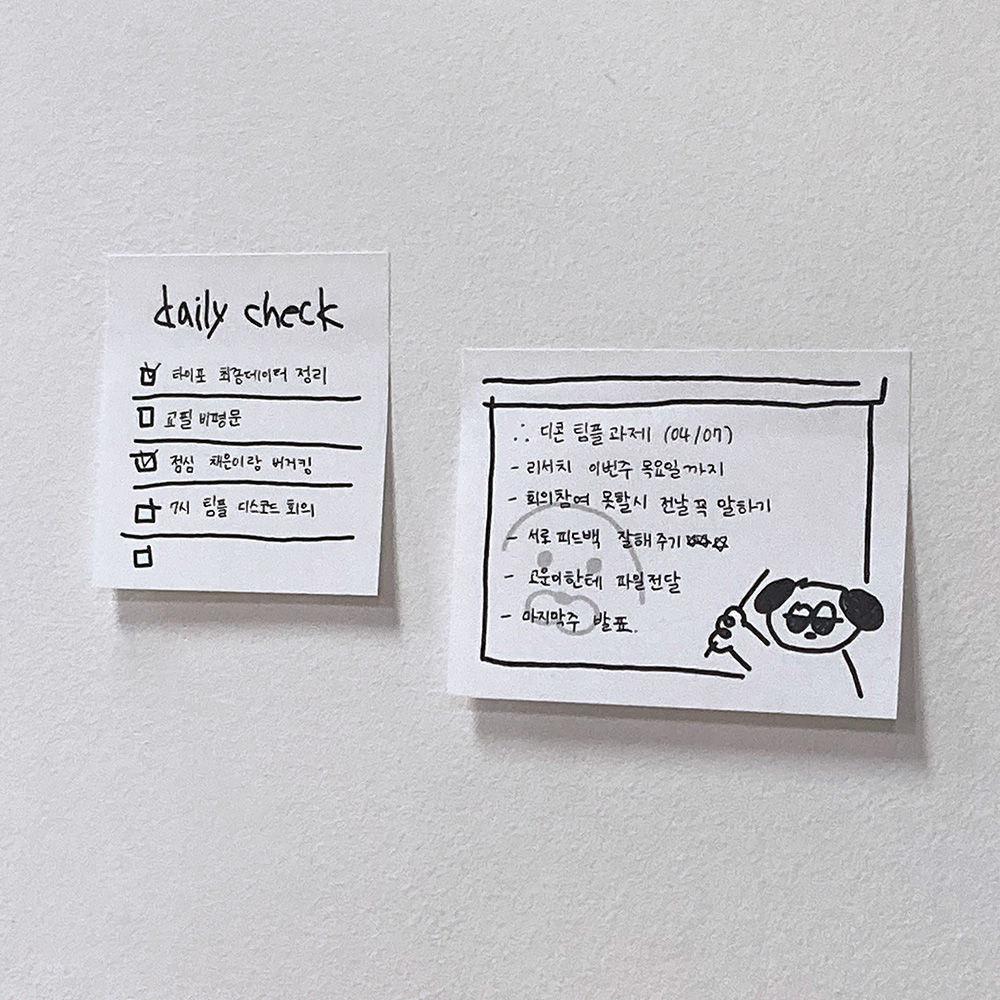 daily check
타이포 최종데이터 정리
교필 비평문
점심 채은이랑 버거킹
7시 팀플 디스코드 회의
∴ 디콘 팀플과제 (04/07)
- 리서치 이번주 목요일까지
- 회의참여 못할시 전날 꼭 말하기
- 서로 피드백 잘해주기 ☆☆☆
- 고운이한테 파일전달
- 마지막주 발표.